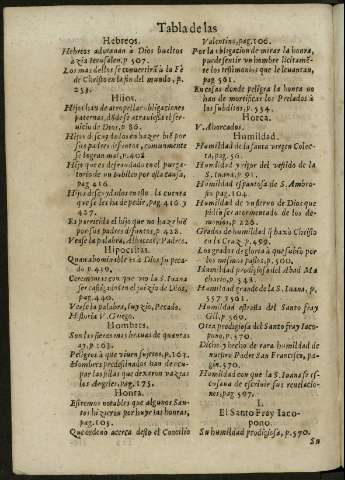 Tabla de las
Hebreos.
Hebreos adorauan à Dios bueltos
àzia Ierusalen, p 507.
Los mas dellos se conuertirã à la Fè
de Christo en la fin del mundo, p.
253.
Hijos.
Hijos han de atropellar obligaciones
paternas, dõde se atrauiessa el ser-
uicio de Dios, p 86.
Hijos descuydados en hazer biẽ por
sus padres difuntos, comunmente
se logran mal, p. 402
Hijo que es defraudado en el purga-
torio de un sufragio por esta causa,
pag. 416.
Hijos descuydados en esto. la cuenta
que se les ha de pedir, pag. 416 y
427.
Es parricida el hijo que no haze biẽ
por sus padres difuntos, p. 428.
Vease la palabra, Albaceas, Padres.
Hipocritas.
Quan abominable es à Dios su peca-
do p. 419,
Ceremonias con que vio la S. Iuana
ser castigados en el juizio de Dios,
pag. 440.
Vease la palabra, Iuyzio, Pecado.
Historia V. Griego.
Hombres.
Son las fieras mas brauas de quantas
ay, p. 163.
Peligros à que viuen sujetos, p. 163.
Hombres predestinados han de ocu-
par las sillas que dexaron vazias
los Angeles, pag. 175.
Honra.
Estremos notables que algunos San-
tos hizieron por huyr las honras,
pag. 105.
Que ordenò acerca desto el Concilio
Valentino, pag. 106.
Por la obligacion de mirar la honra,
puede sentir un hombre licitamẽ-
te los testimonios que le leuantan,
pag 561.
En cosas donde peligra la honra no
han de mortificar los Prelados à
los subditos, p. 554.
Horca.
V. Ahorcados.
Humildad.
Humildad de la santa virgen Colec-
ta, pag. 56.
Humildad y rigor del vestido de la
S. Iuana, p. 91.
Humildad espantosa de S. Ambro-
sio, pag. 104.
Humildad de un sieruo de Dios que
pidio ser atormentado de los de-
monios, p. 226.
Grados de humildad q̃ baxò Christo
en la Cruz, p. 499.
Los grados de gloria à que subio por
los mismos passos, p. 500.
Humildad prodigiosa del Abad Ma
chario, p. 549.
Humildad grande de la S. Iuana, p.
557. y 561.
Humildad estraña del Santo fray
Gil. p. 569.
Otra prodigiosa del Santo fray Iaco-
pono, p. 570.
Dicho y hecho de rara humildad de
nuestro Padre San Francisco, pa-
gin. 570.
Humildad con que la S. Iuana se es-
cusaua de escriuir sus reuelacio-
nes, pag. 507.
I.
El Santo Fray Iaco-
pono.
Su humildad prodigiosa, p. 570.
Su